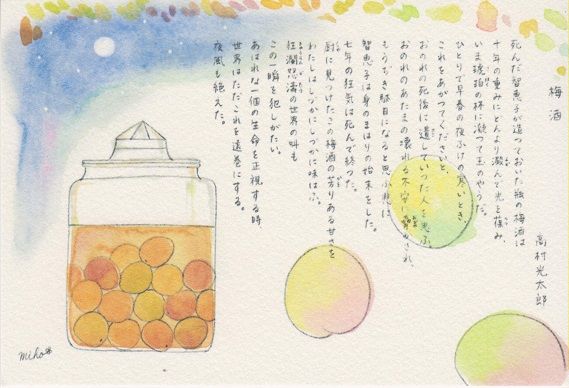 梅酒
高村光太郎
死んだ智恵子が造つておいた瓶の梅酒は
十年の重みにどんより澱んで光を葆み、
いま琥珀の杯に凝つて玉のやうだ。
ひとりで早春の夜ふけの寒いとき、
これをあがつてくださいと、
おのれの死後に遺していつた人を思ふ。
おのれのあたまの壊れる不安に脅かされ、
もうぢき駄目になると思ふ悲に
智恵子は身のまはりの始末をした。
七年の狂気は死んで終つた。
厨に見つけたこの梅酒の芳りある甘さを
わたしはしづかにしづかに味はふ。
狂瀾怒濤の世界の叫も
この一瞬を犯しがたい。
あはれな一個の生命を正視する時、
世界はただこれを遠巻にする。
夜風も絶えた。
miho